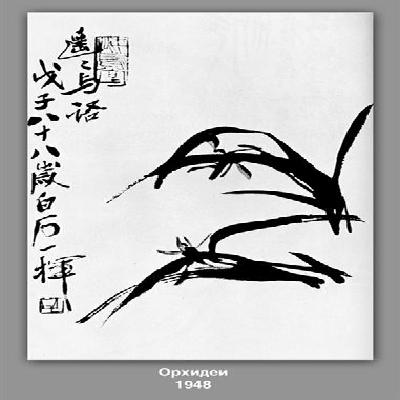 戊子八十八歲白石一揮
Орхидеи
1948